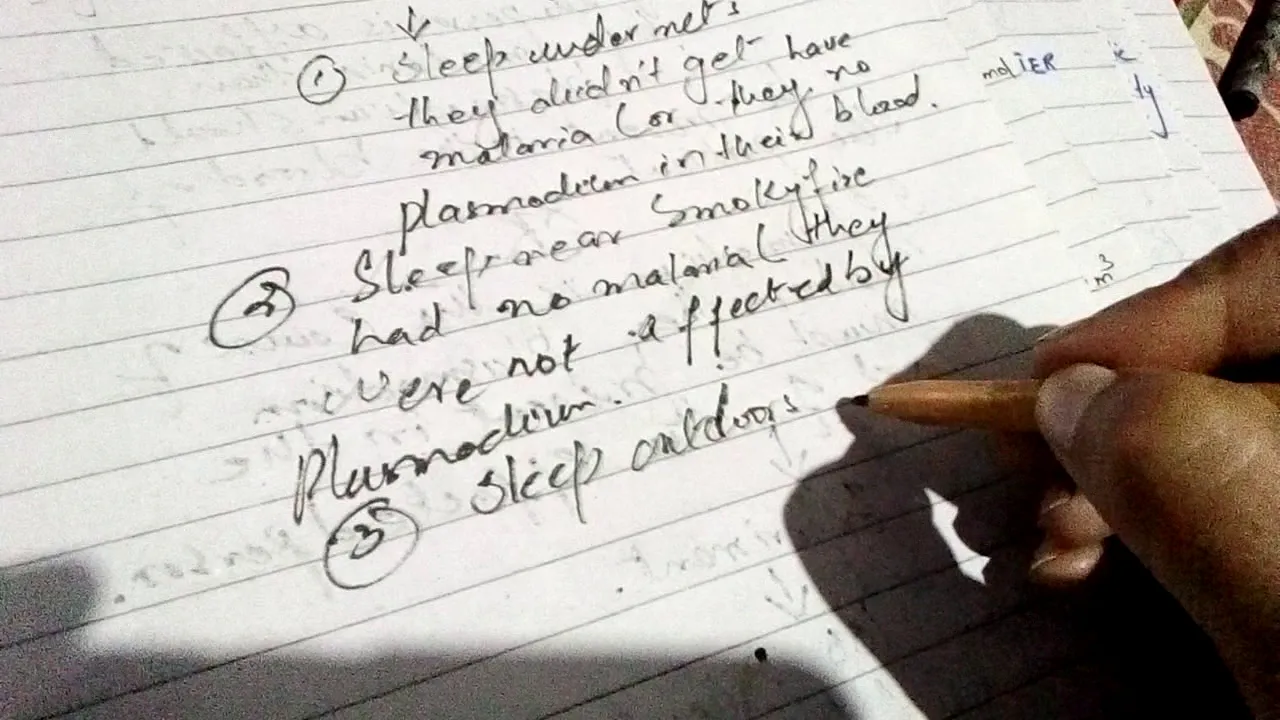 ① Sleep under nets
they didn't get have
malaria (or they no
plasmodium in their blood.
② Sleep near Smoky fire
had no malaria( they
were not affected by
Plasmodium.
③ Sleep outdoors
molIER
ty
3
m